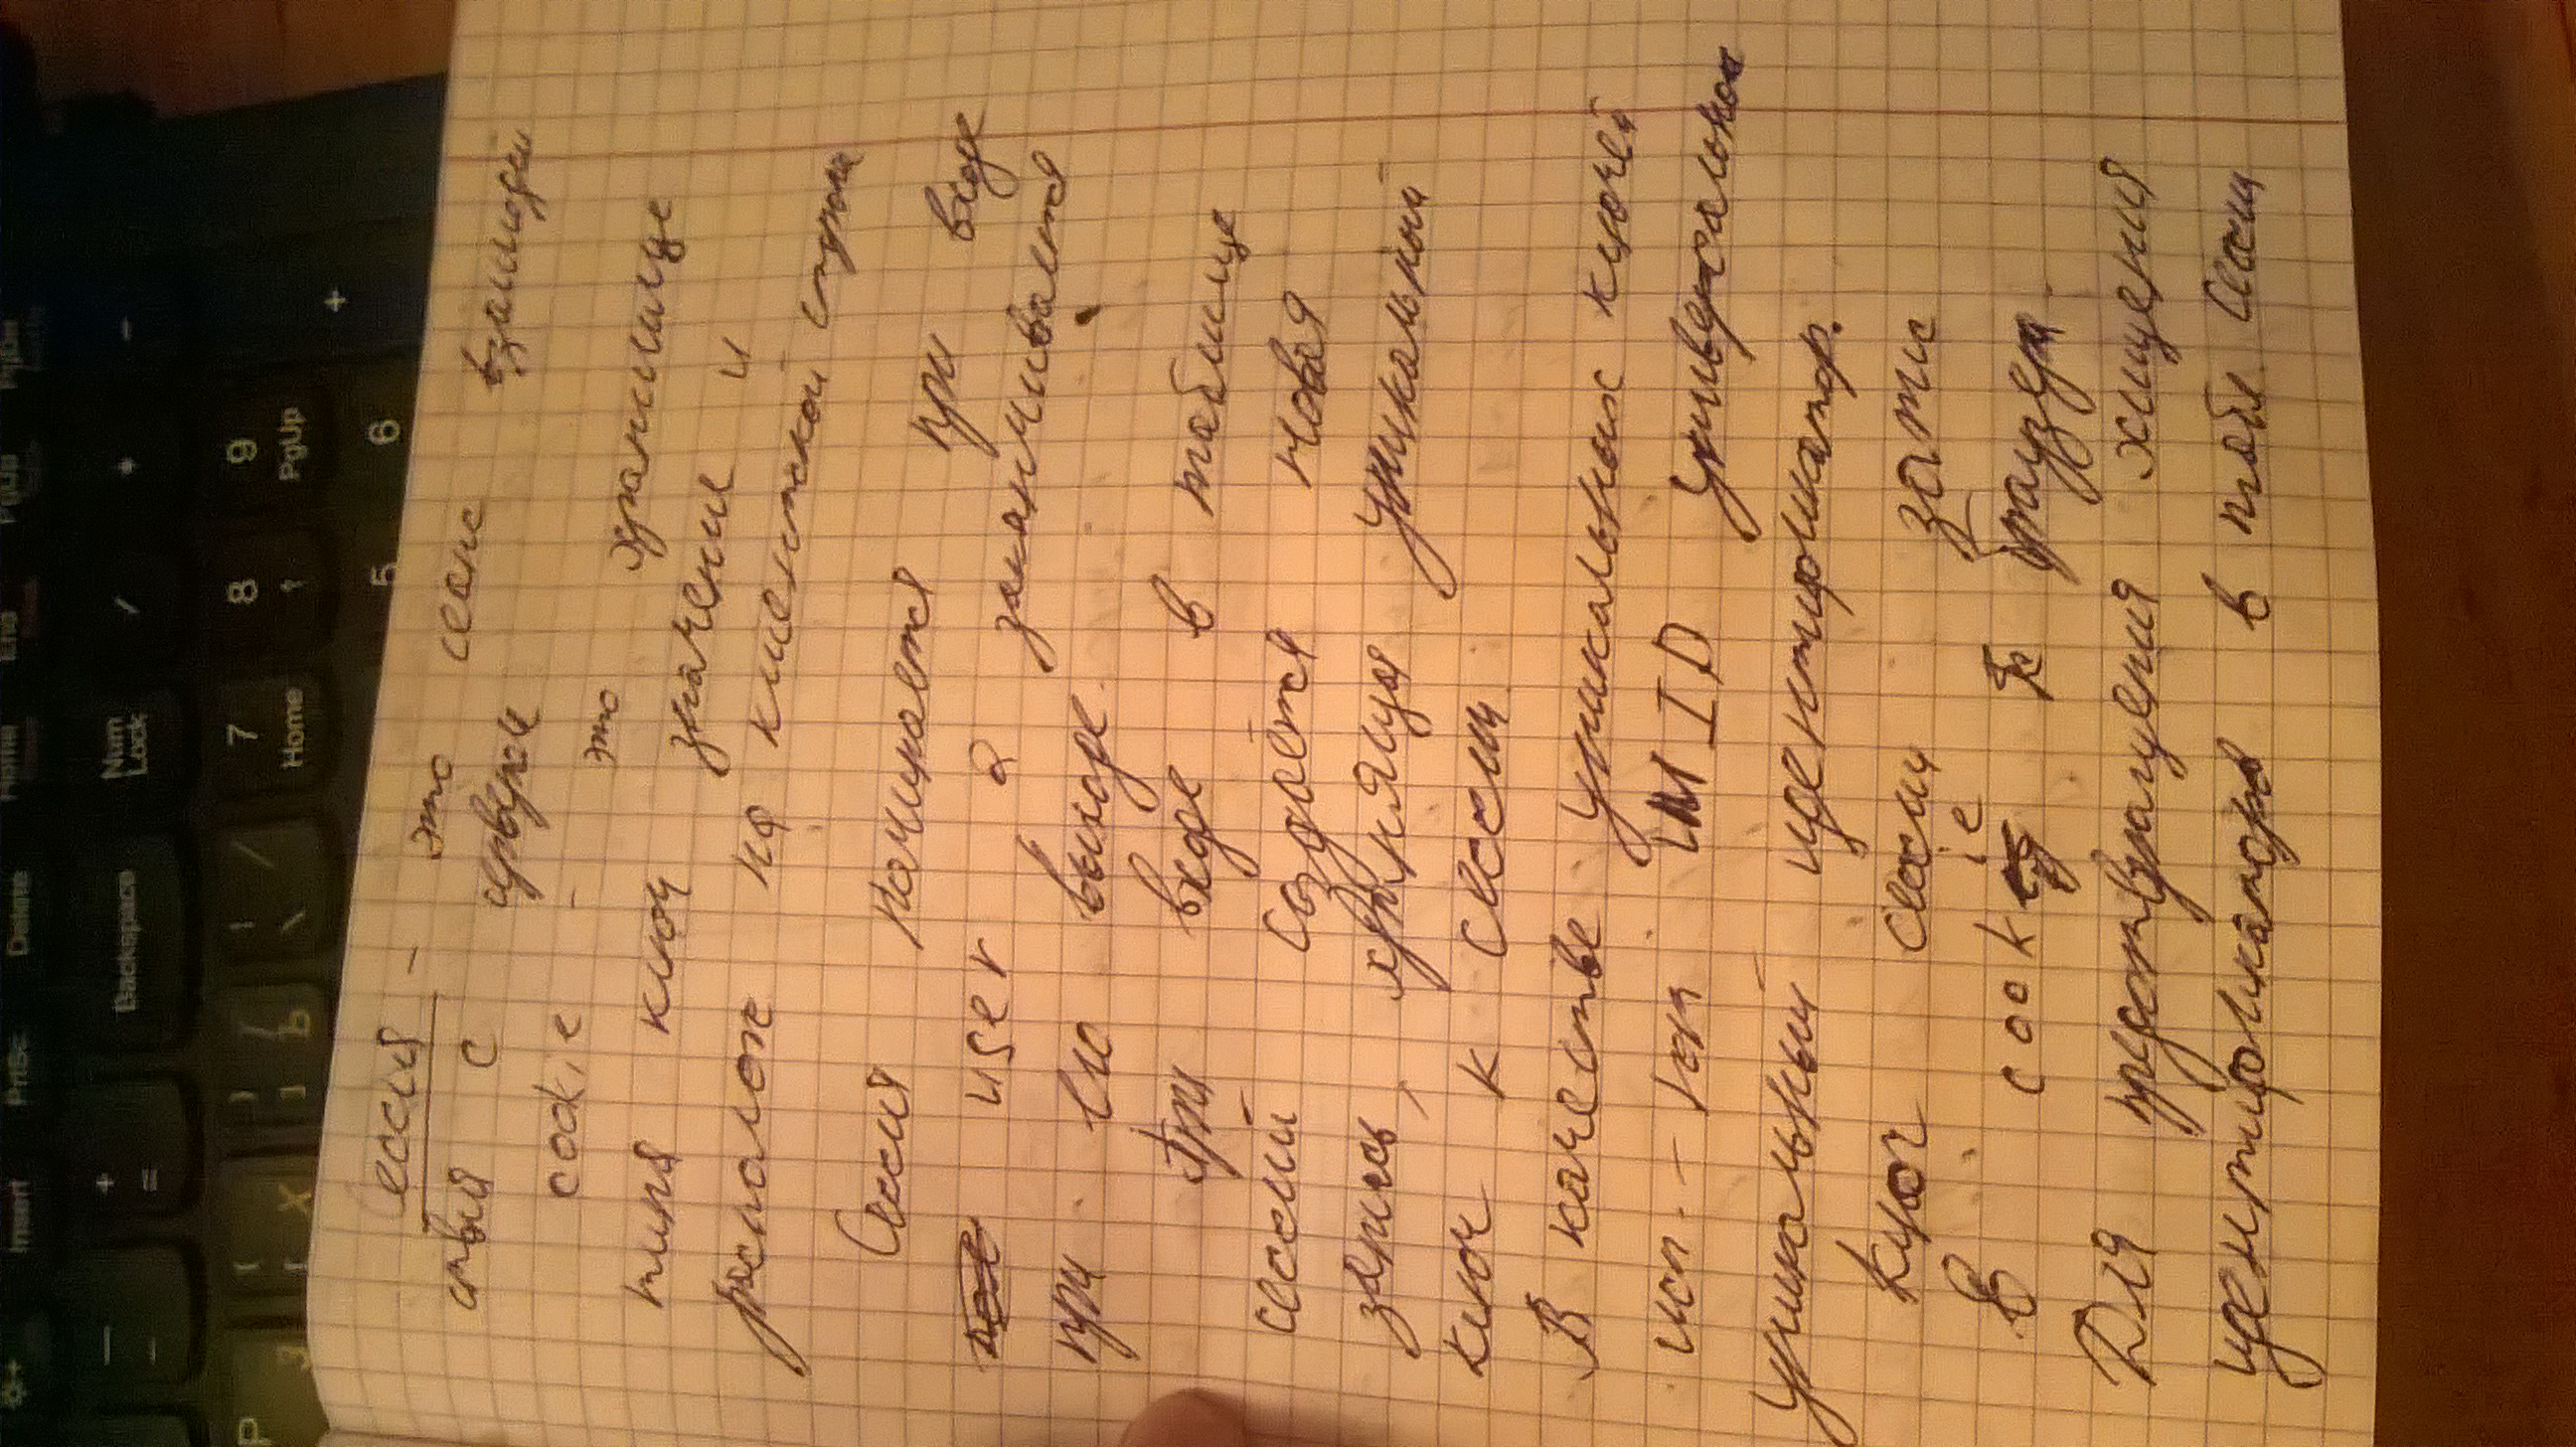 Insert PrtSc Delete Home End PgUp PgDn
— + Backspace Num Lock / * -
- =
P { } | / 7 8 9
З [ Х ] Ъ \ Home ↑ PgUp
+
5 6
Сессия - это сеанс взаимодей
ствия с сервером
cookie - это хранилище
типа ключ значение и
располож на клиентской стороне
Сессия начинается при входе
user, а заканчивается
при его выходе.
При входе в таблице
сессий создаётся новая
запись, хранящая уникальный
ключ к сессии.
В качестве уникальных ключей
исп. - UUID универсальный
уникальный идентификатор.
Ключ сессии запис
в cookie браузера.
Для предотвращения хищения
идентификатора в табл. сессии